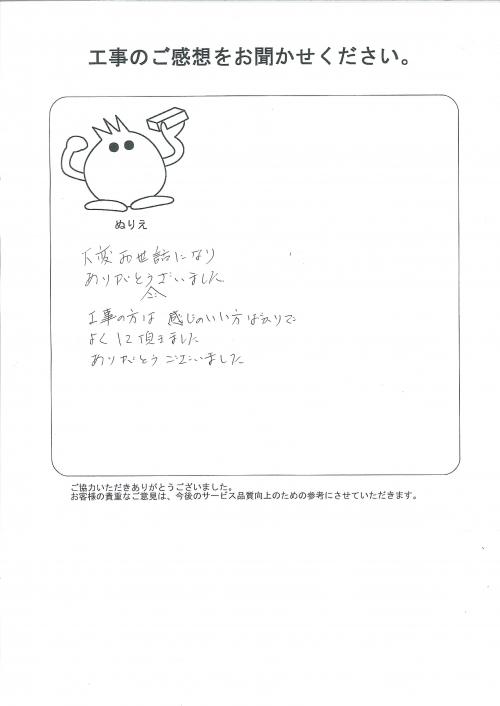 工事のご感想をお聞かせください。
ぬりえ
大変お世話になり
ありがとうございました
工事の方は 感じのいい方ばかりで
よくして頂きました
ありがとうございました
ご協力いただきありがとうございました。
お客様の貴重なご意見は、今後のサービス品質向上のための参考にさせていただきます。